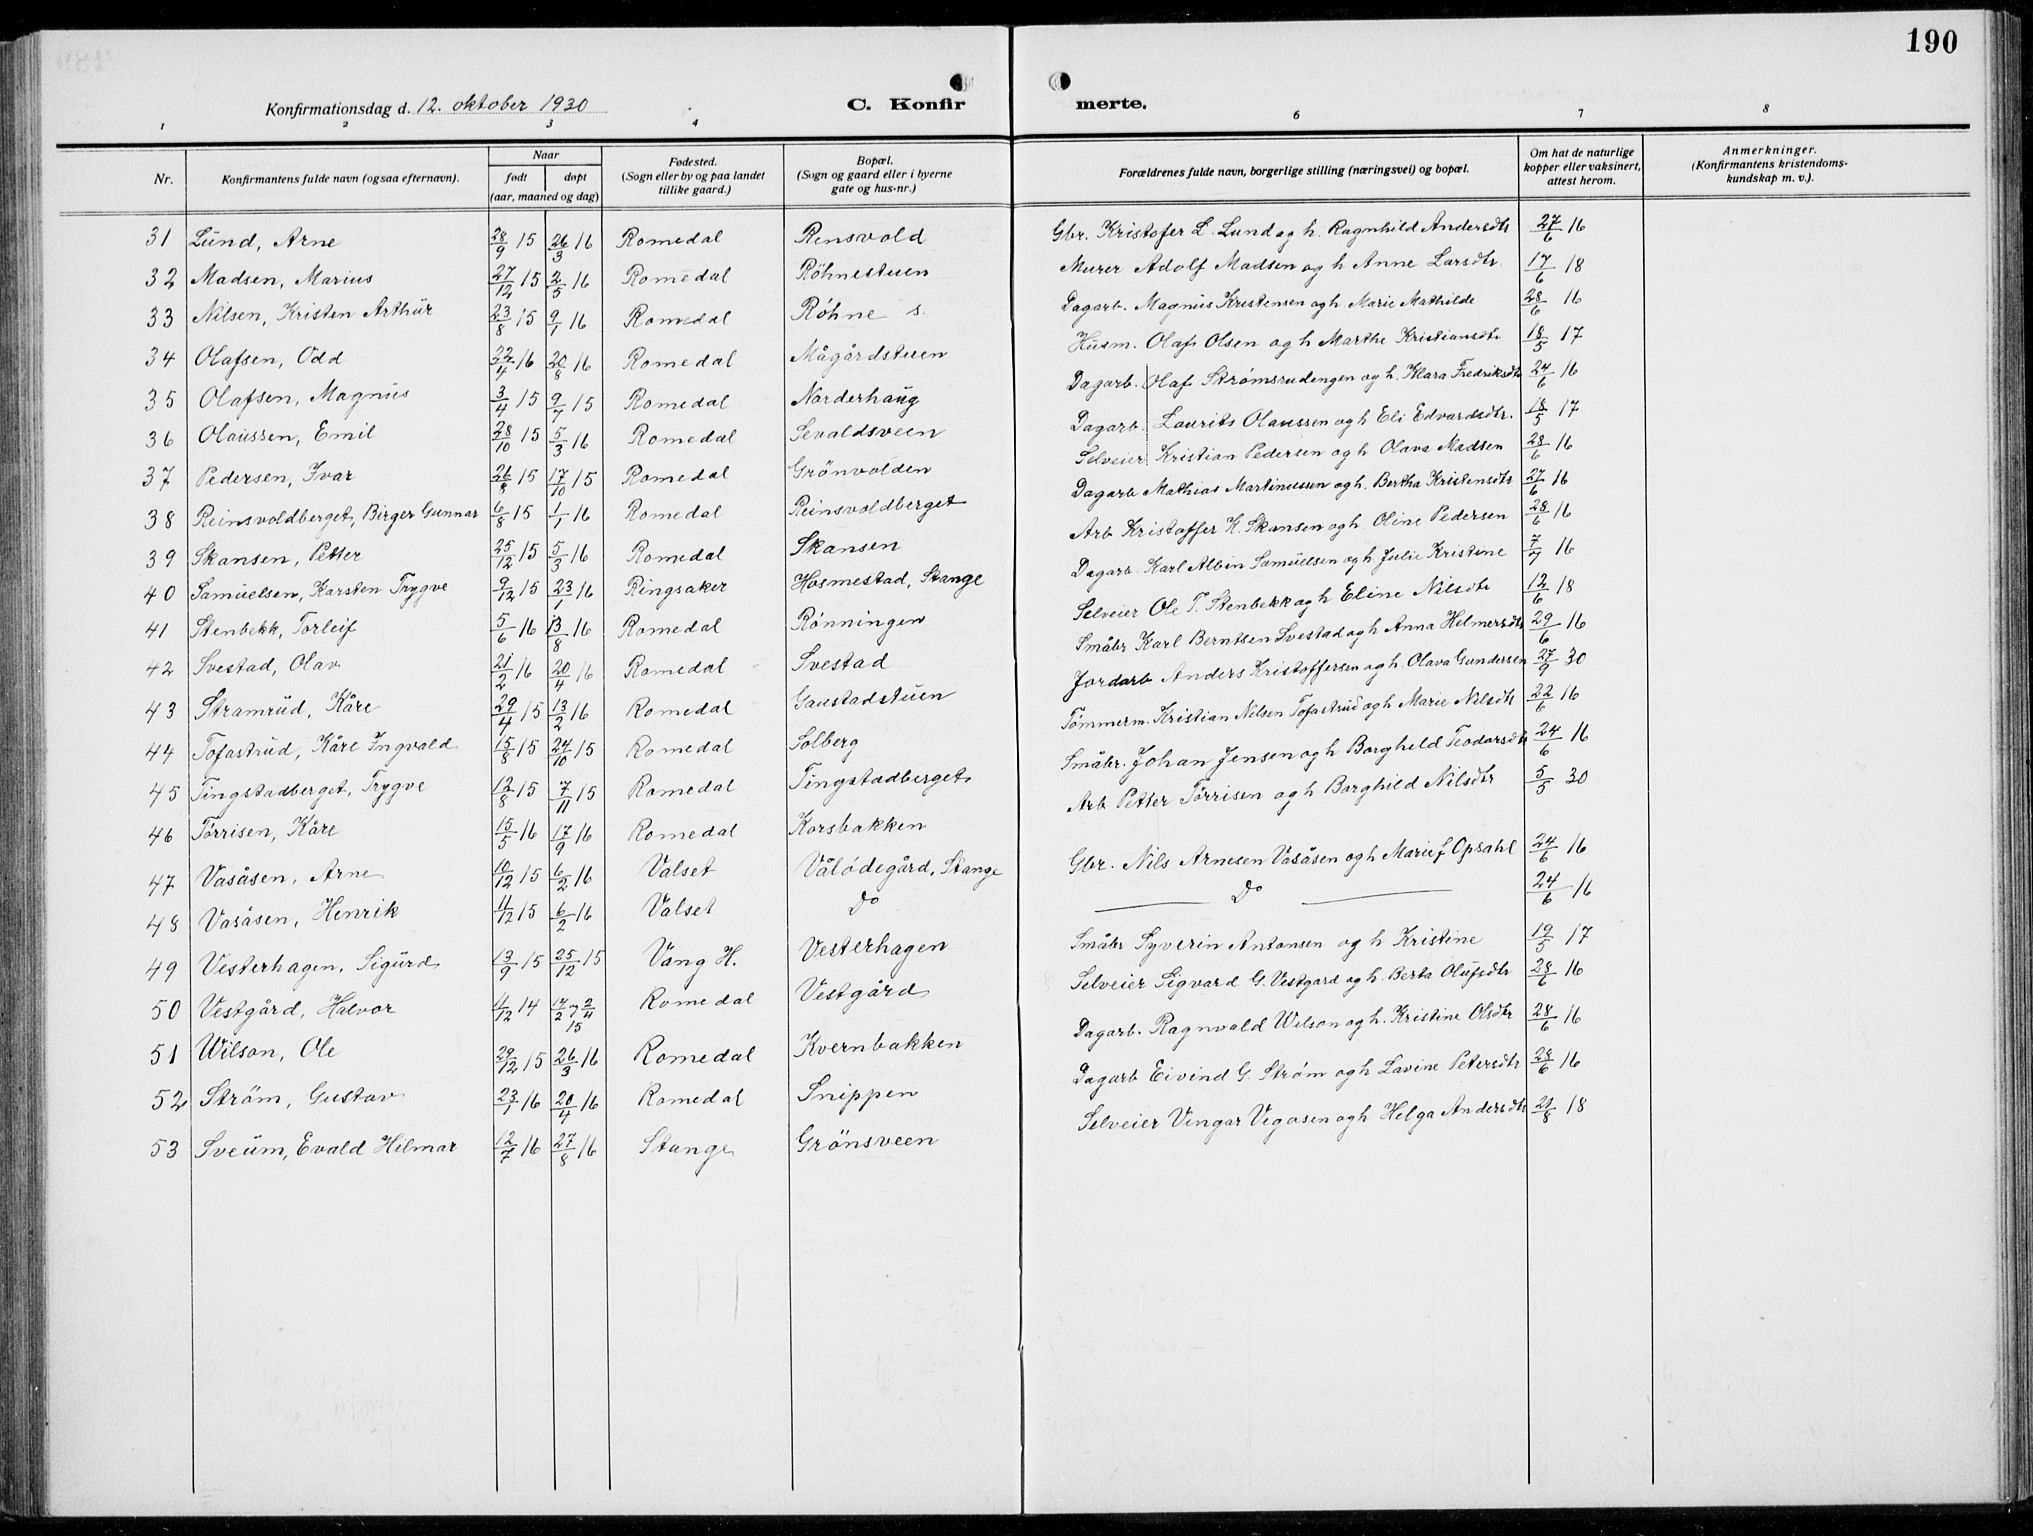 190
Konfirmationsdag d. 12. oktober 1930 C. Konfir merte.
1 2 3 4 6 7 8
Nr. Konfirmantens fulde navn (ogsaa efternavn). Naar født døpt (aar, maaned og dag) Fødested. (Sogn eller by og paa landet tillike gaard.) Bopæl. (Sogn og gaard eller i byerne gate og hus-nr.) Forældrenes fulde navn, borgerlige stilling (næringsvei) og bopæl. Om hat de naturlige kopper eller vaksinert, attest herom. Anmerkninger. (Konfirmantens kristendoms-kundskap m. v.).
31 Lund, Arne 28/9 15 26/3 16 Romedal Rensvold Gbr. Kristofer L. Lund og h. Ragnhild Andersdtr 27/6 16
32 Madsen, Marius 27/12 15 2/5 16 Romedal Röhnestuen Murer Adolf Madsen og h Anne Larsdtr. 17/6 18
33 Nilsen, Kristen Arthur 23/8 15 9/1 16 Romedal Röhne s. Dagarb. Magnus Kristensen og h Marie Mathilde 28/6 16
34 Olafsen, Odd 22/4 16 20/8 16 Romedal Mågårdstuen Husm. Olaf Olsen og h Marthe Kristiansdtr 18/5 17
35 Olafsen, Magnus 3/4 15 9/7 15 Romedal Norderhaug Dagarb. Olaf Strømsrudengen og h. Klara Fredriksdtr 24/6 16
36 Olaussen, Emil 28/10 15 5/3 16 Romedal Sevaldsveen Dagarb. Laurits Olaussen og h Eli Edvardsdtr. 18/5 17
37 Pedersen, Ivar 26/8 15 17/10 15 Romedal Grönvolden Selveier Kristian Pedersen og h Olava Madsen 28/6 16
38 Reinsvoldberget, Birger Gunnar 6/8 15 1/1 16 Romedal Reinsvoldberget Dagarb Mathias Martinussen og h. Bertha Kristensdtr 27/6 16
39 Skansen, Petter 25/12 15 5/3 16 Romedal Skansen Arb Kristoffer K. Skansen og h. Oline Pedersen 28/6 16
40 Samuelsen, Karsten Trygve 9/12 15 23/1 16 Ringsaker Hosmestad, Stange Dagarb. Karl Albin Samuelsen og h. Julie Kristine 7/7 16
41 Stenbekk, Torleif 5/6 16 13/8 16 Romedal Rönningen Selveier Ole T. Stenbekk og h Eline Nilsdtr 12/6 18
42 Svestad, Olav 21/2 16 20/4 16 Romedal Svestad Småbr Karl Berntsen Svestad og h Anna Helmersdtr 29/6 16
43 Stramrud, Kåre 29/4 15 13/2 16 Romedal Gaustadstuen Jordarb Anders Kristoffersen og h. Olava Gundersen 27/9 30
44 Tofastrud, Kåre Ingvald 15/8 15 24/10 15 Romedal Solberg Tømmerm. Kristian Nilsen Tofastrud og h Marie Nilsdtr 22/6 16
45 Tingstadberget, Trygve 12/8 15 7/11 15 Romedal Tingstadberget Småbr. Johan Jensen og h Borghild Teodorsdtr 24/6 16
46 Tørrisen, Kåre 15/5 16 17/9 16 Romedal Korsbakken Arb Petter Tørrisen og h Borghild Nilsdtr 5/5 30
47 Vasåsen, Arne 10/12 15 6/2 16 Valset Vålødegård, Stange Gbr. Nils Arnesen Vasåsen og h Marie f Opsahl 24/6 16
48 Vasåsen, Henrik 11/12 15 6/2 16 Valset Do Do 24/6 16
49 Vesterhagen, Sigurd 13/9 15 25/12 15 Vang H. Vesterhagen Småbr Syverin Antonsen og h Kristine 19/5 17
50 Vestgård, Halvor 4/12 14 14/2 og 2/11 15 Romedal Vestgård Selveier Sigvard G. Vestgard og h. Berta Olufsdtr 28/6 16
51 Wilson, Ole 29/12 15 26/3 16 Romedal Kvernbakken Dagarb. Ragnvald Wilson og h. Kristine Olsdtr 28/6 16
52 Ström, Gustav 23/1 16 20/4 16 Romedal Snippen Dagarb Eivind G. Strøm og h Lavine Petersdtr 28/6 16
53 Sveum, Evald Hilmar 12/7 16 27/8 16 Stange Grönsveen Selveier Vingar Vegosen og h Helga Andersdtr 21/8 18